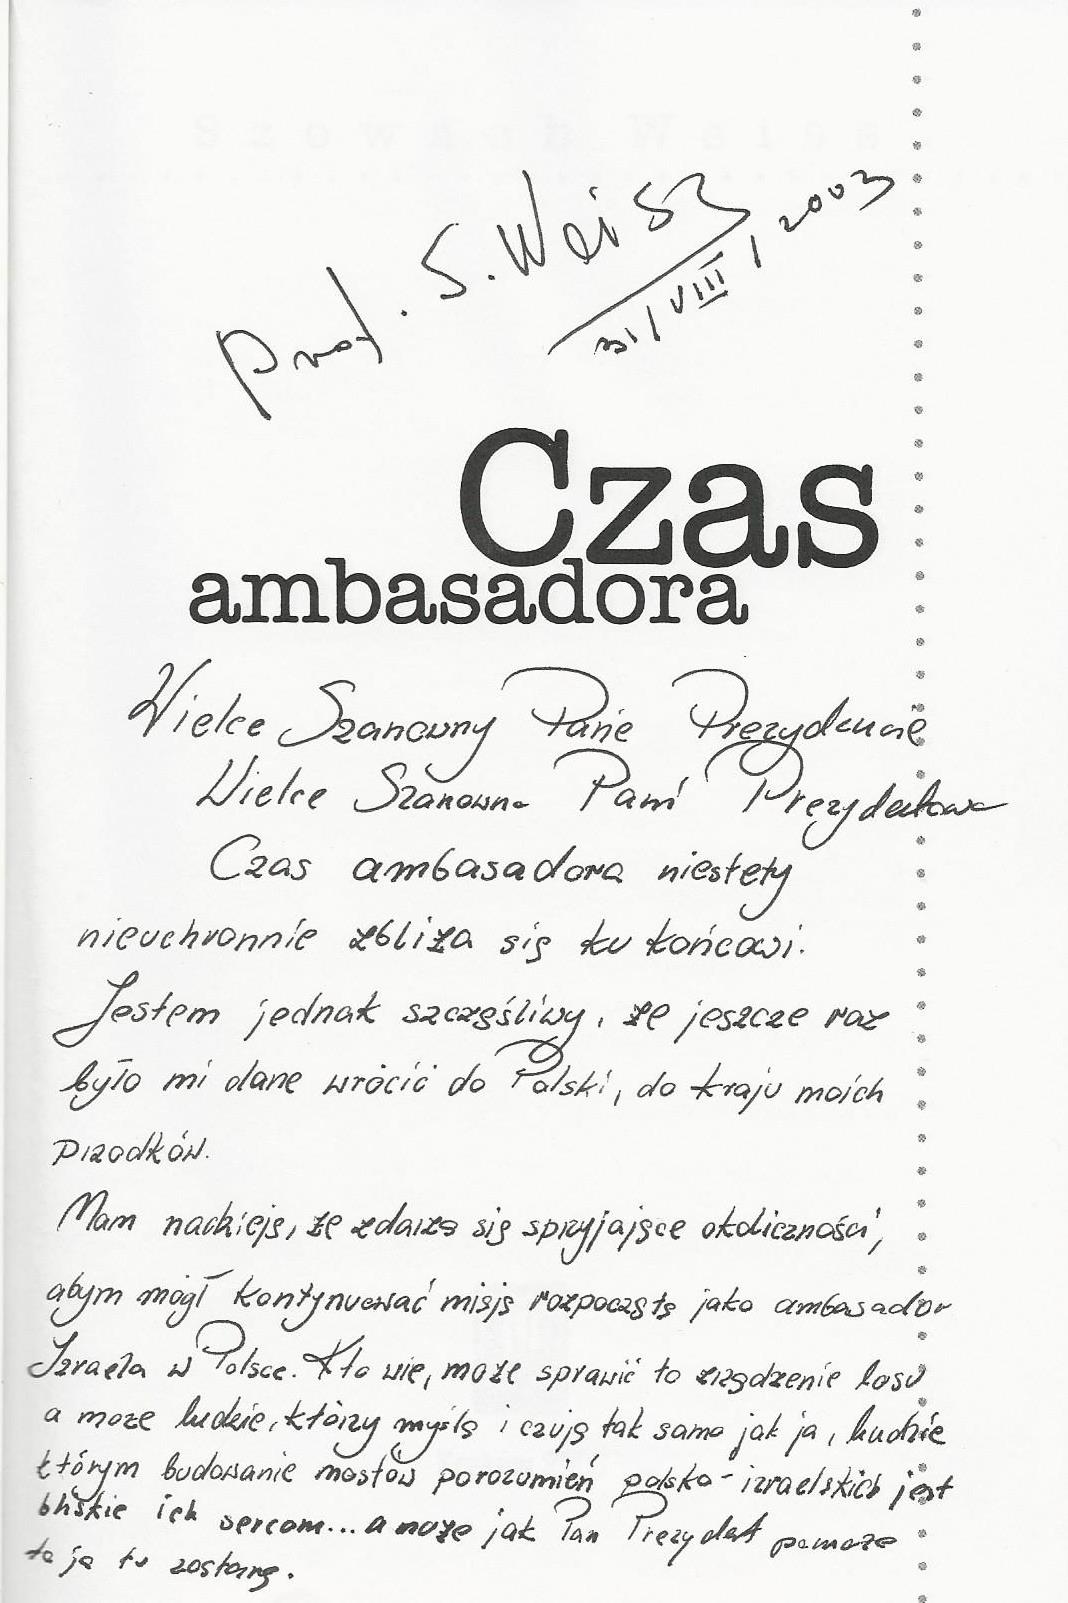 prof. S. Weiss
31/VIII/2003
Czas
ambasadora
Wielce Szanowny Panie Prezydencie
Wielce Szanowna Pani Prezydentowo
Czas ambasadora niestety
nieuchronnie zbliża się ku końcowi.
Jestem jednak szczęśliwy, że jeszcze raz
było mi dane wrócić do Polski, do kraju moich
przodków.
Mam nadzieję, że zdarzą się sprzyjające okoliczności,
abym mógł kontynuować misję rozpoczętą jako ambasador
Izraela w Polsce. Kto wie, może sprawić to zrządzenie losu
a może ludzie, którzy myślą i czują tak samo jak ja, ludzie
którym budowanie mostów porozumień polsko-izraelskich jest
bliskie ich sercom... a może jak Pan Prezydent pomoże
to ja tu zostanę.